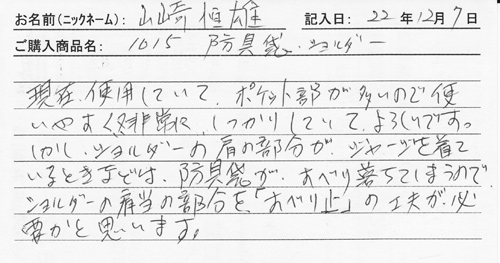 お名前(ニックネーム): 山崎恒雄 記入日: 22年12月7日
ご購入商品名: 1015 防具袋・ショルダー
現在使用していて、ポケット部が多いので使
いやすく非常に、しっかりしていて、よろしいですっ
しかし、ショルダーの肩の部分が、ジャージを着て
いるときなどは、防具袋が、すべり落ちてしまうので
ショルダーの肩当の部分を「すべり止」の工夫が必
要かと思います。